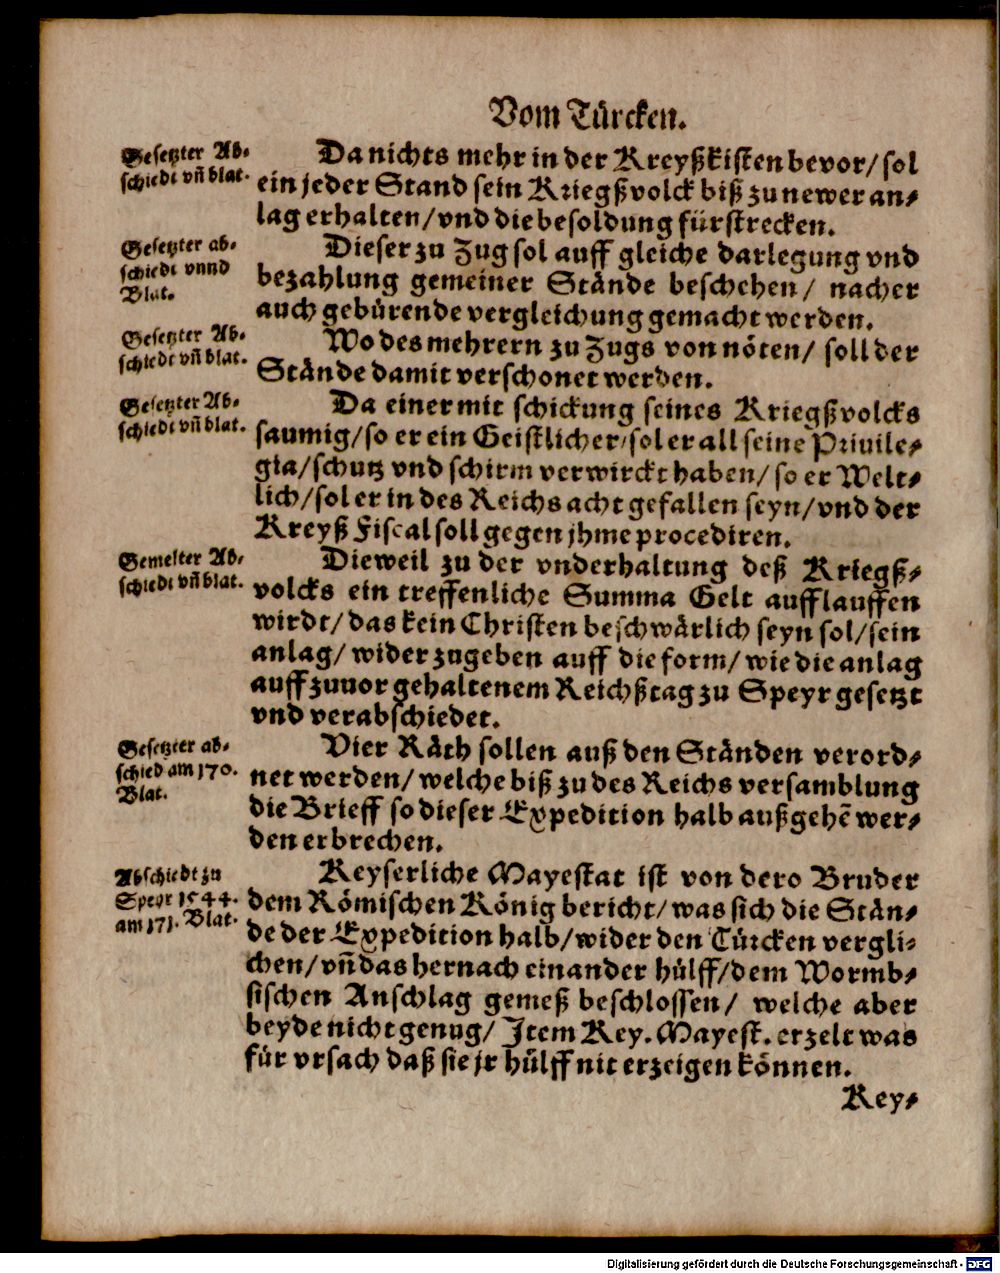 Vom Türcken.
Gesetzter Ab-
schiedt vn̄ blat.
Da nichts mehr in der Kreyßkisten bevor/ sol
ein jeder Stand sein Kriegßvolck biß zu newer an-
lag erhalten/ vnd die besoldung fürstrecken.
Gesetzter ab-
schiedt vnnd
Blat.
Dieser zu Zug sol auff gleiche darlegung vnd
bezahlung gemeiner Stände beschehen/ nacher
auch gebürende vergleichung gemacht werden.
Gesetzter Ab-
schiedt vn̄ blat.
Wo des mehrern zu Zugs von nöten/ soll der
Stände damit verschonet werden.
Gesetzter Ab-
schiedt vn̄ blat.
Da einer mit schickung seines Kriegßvolcks
saumig/ so er ein Geistlicher/ sol er all seine Priuile-
gia/ schutz vnd schirm verwirckt haben/ so er Welt-
lich/ sol er in des Reichs acht gefallen seyn/ vnd der
Kreyß Fiscal soll gegen jhme procediren.
Gemelter Ab-
schiedt vn̄ blat.
Dieweil zu der vnderhaltung deß Kriegß-
volcks ein treffenliche Summa Gelt aufflauffen
wirdt/ das kein Christen beschwärlich seyn sol/ sein
anlag/ wider zugeben auff die form/ wie die anlag
auff zuuor gehaltenem Reichßtag zu Speyr gesetzt
vnd verabschiedet.
Gesetzter ab-
schied am 170.
Blat.
Vier Räth sollen auß den Ständen verord-
net werden/ welche biß zu des Reichs versamblung
die Brieff so dieser Expedition halb außgehē wer-
den erbrechen.
Abschiedt zu
Speyr 1544.
am 171. Blat.
Keyserliche Mayestat ist von dero Bruder
dem Römischen König bericht/ was sich die Stän-
de der Expedition halb/ wider den Türcken vergli-
chen/ vn̄ das hernach einander hülff/ dem Wormb-
sischen Anschlag gemeß beschlossen/ welche aber
beyde nicht genug/ Item Key. Mayest. erzelt was
für vrsach daß sie jr hülff nit erzeigen können.
Key-
Digitalisierung gefördert durch die Deutsche Forschungsgemeinschaft - DFG